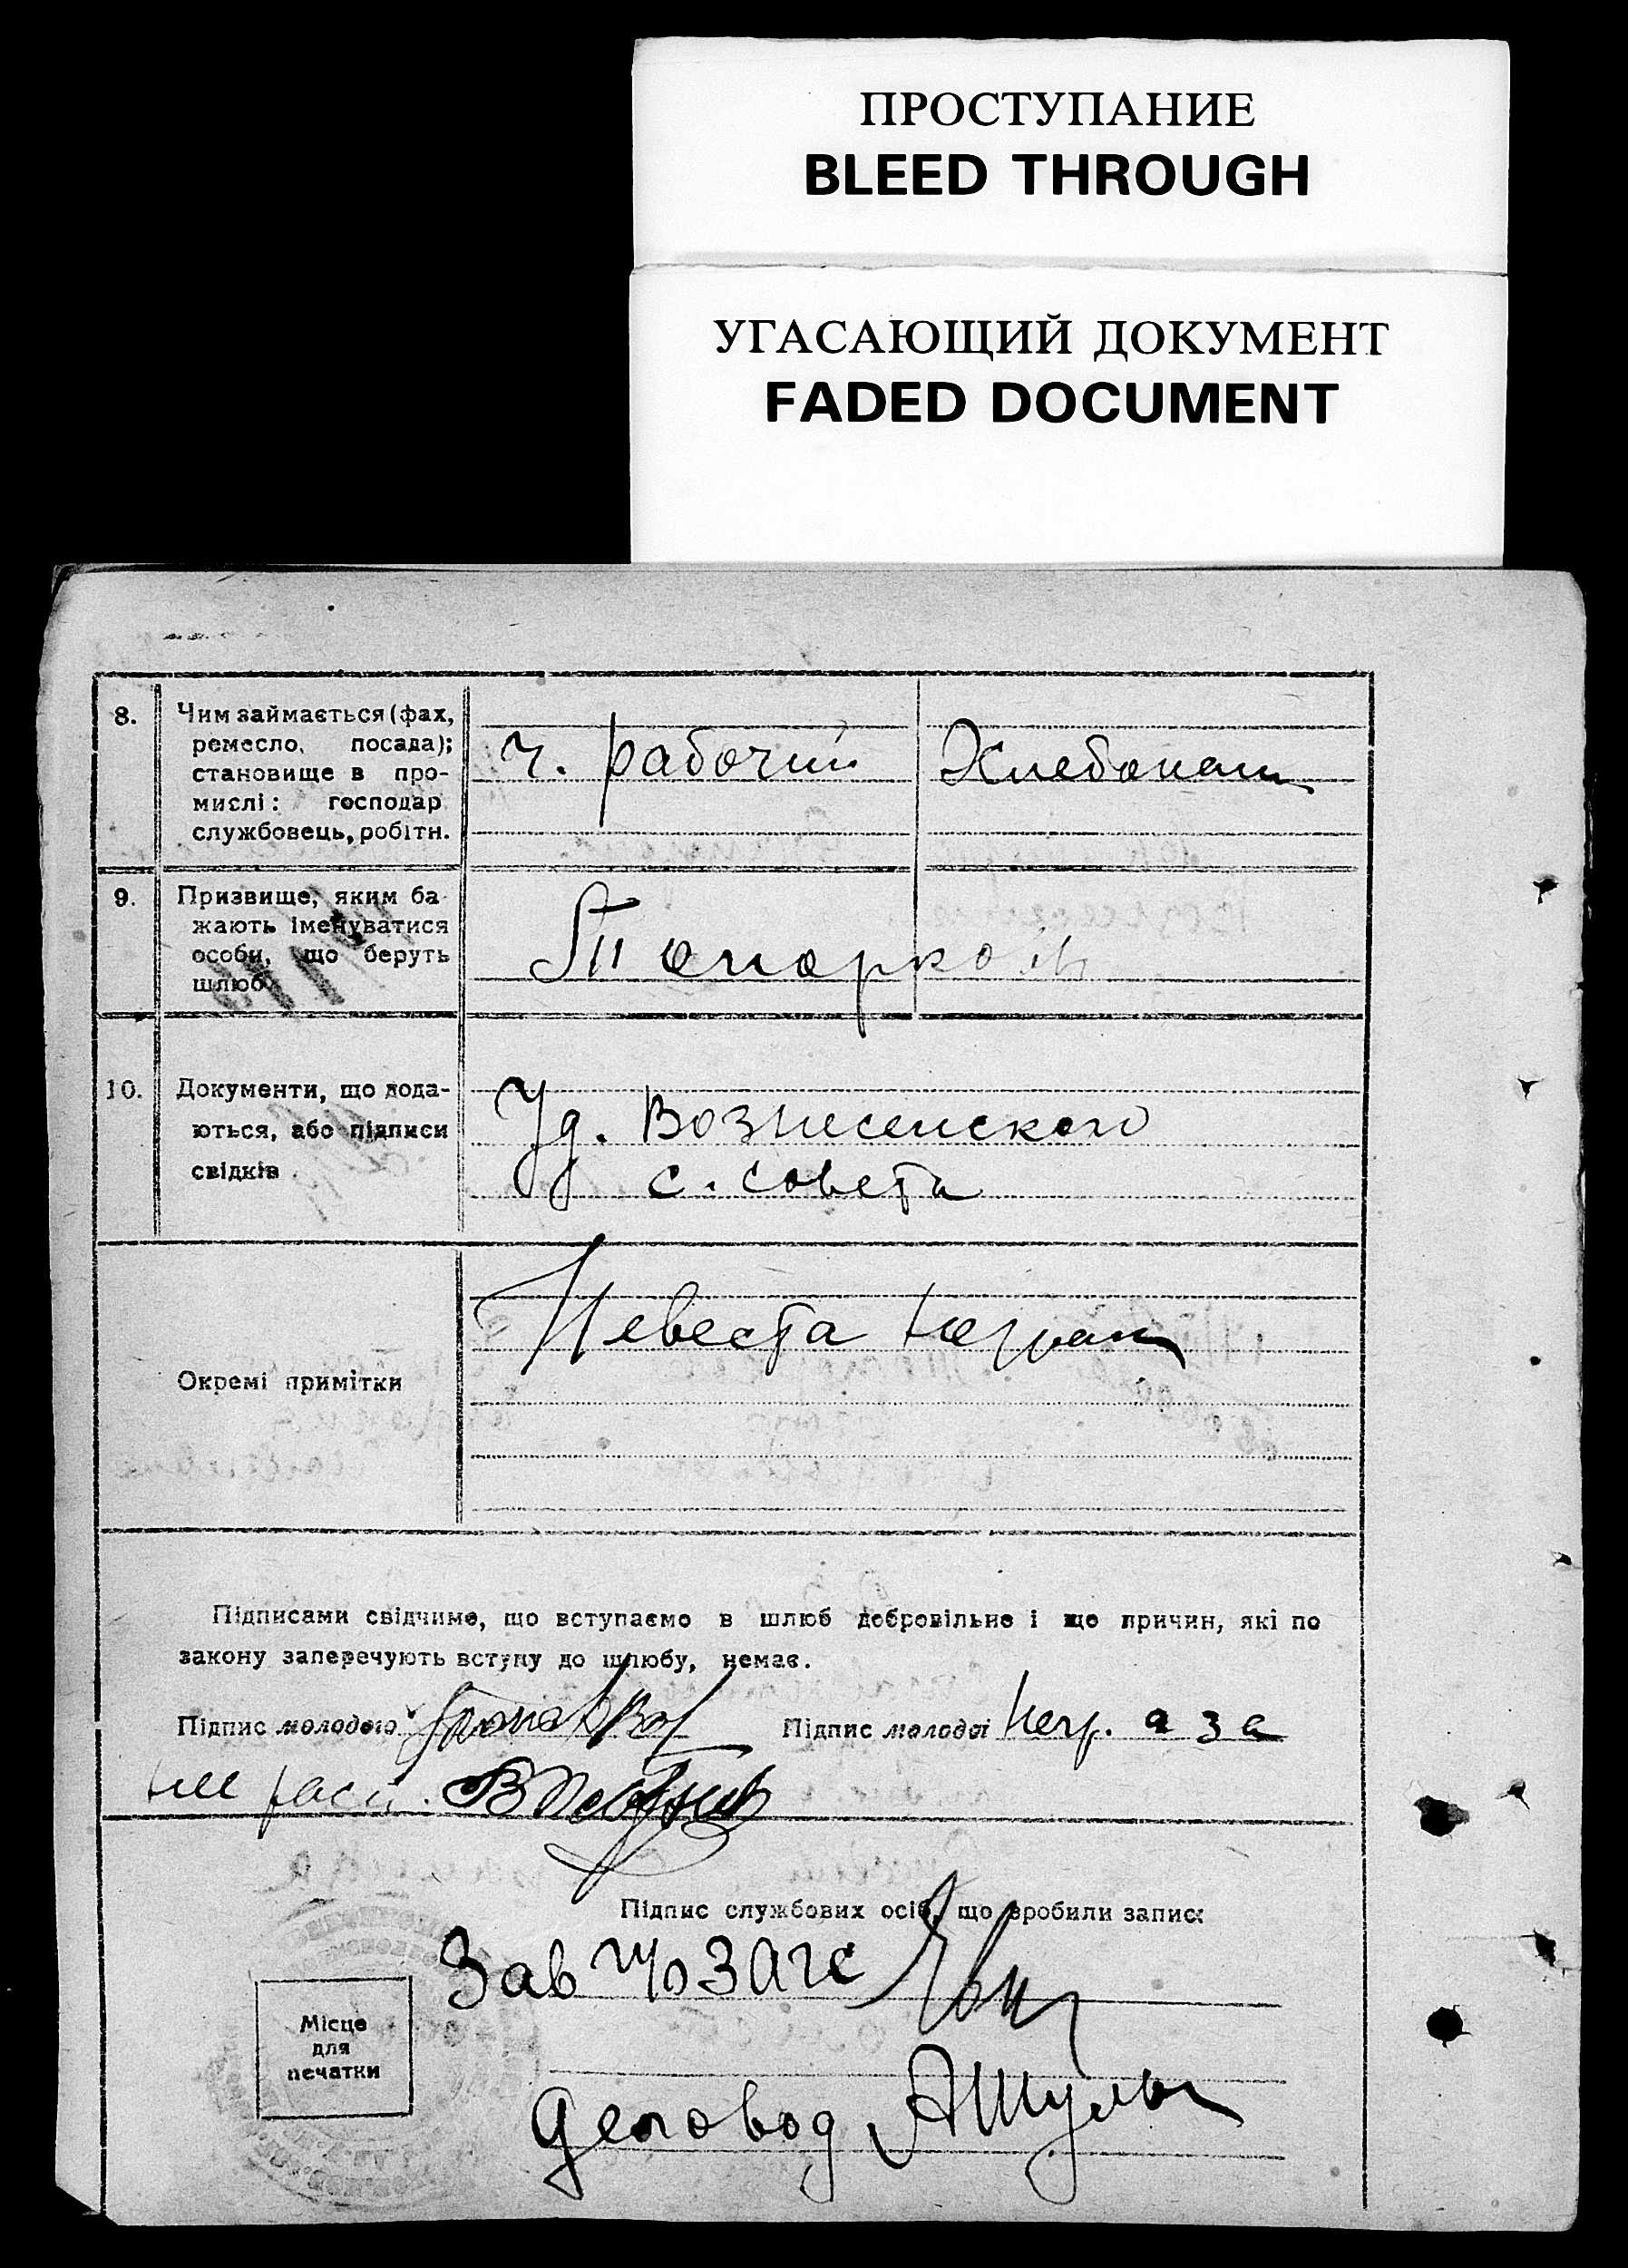 ПРОСТУПАНИЕ
BLEED THROUGH
УГАСАЮЩИЙ ДОКУМЕНТ
FADED DOCUMENT
8. Чим займається (фах,
ремесло, посада);
становище в про-
мислі: господар
службовець, робітн.
ч. рабочий Хлебопаш
9. Призвище, яким ба-
жають іменуватися
особи, що беруть
шлюб
Топорков
10. Документи, що дода-
ються, або підписи
свідків
Уд. Вознесенского
с. совета
Окремі примітки
Невеста неграм
Підписами свідчимо, що вступаємо в шлюб добровільно і що причин, які по
закону заперечують вступу до шлюбу, немає.
Підпис молодого Підпис молодої негр. а за
нее расп.
Підпис службових осіб, що зробили запис:
Зав ЗАГС
Місце
для
печатки
Деловод